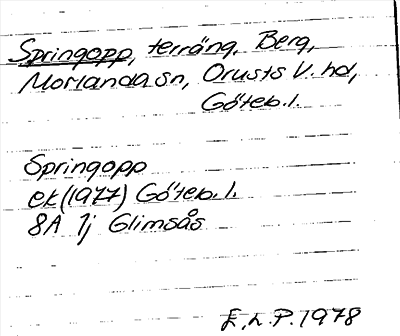 Springopp, terräng, Berg,
Morlanda sn, Orusts V. hd,
Göteb. l.
Springopp
ek (1977) Göteb. l.
8A 1j Glimsås
E.L.P. 1978